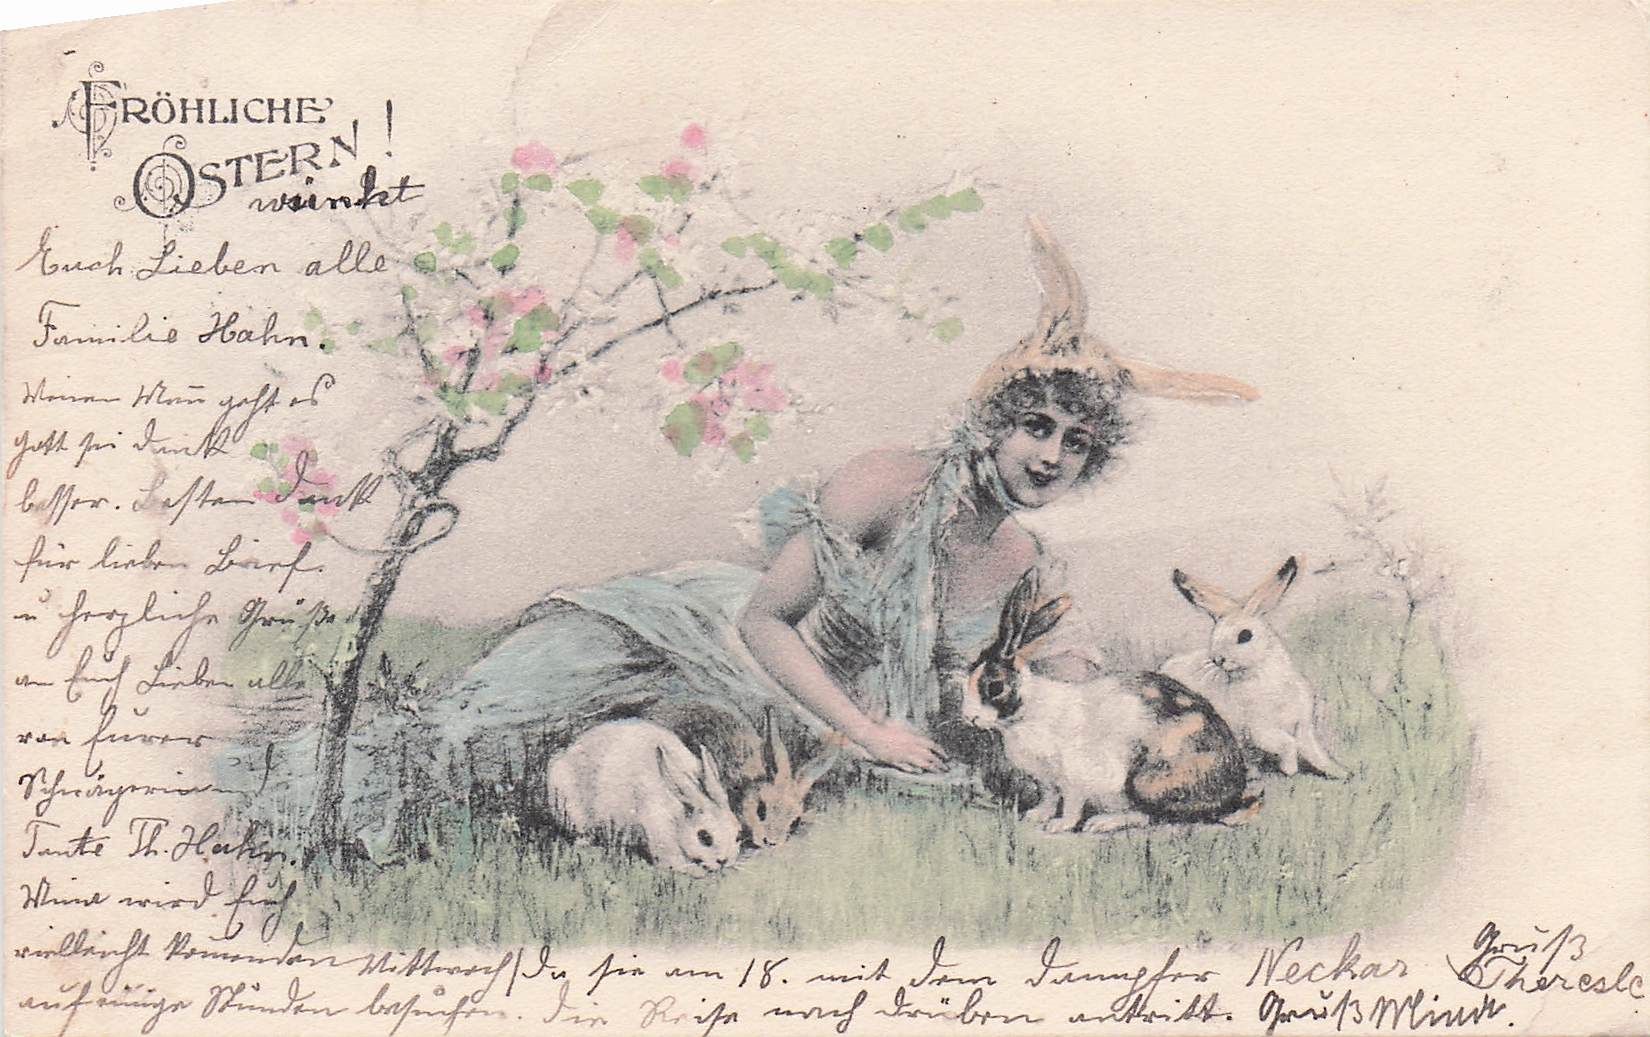 FRÖHLICHE
OSTERN!
wünkt
Euch Lieben alle
Familie Hahn.
Meinen Mañ geht es
gott sei dank
besser. Besten Dank
für lieben Brief.
u herzliche Grüße
an Euch Lieben alle
von Eurer
Schwägerin und
Tante Th. Hahn.
Mina wird Euch
vielleicht komenden Mittwoch
auf einige Stunden besuchen.
da sie am 18. mit dem Dampfer Neckar
die Reise nach drüben antritt.
Gruß
Theresle
Gruß Mina.